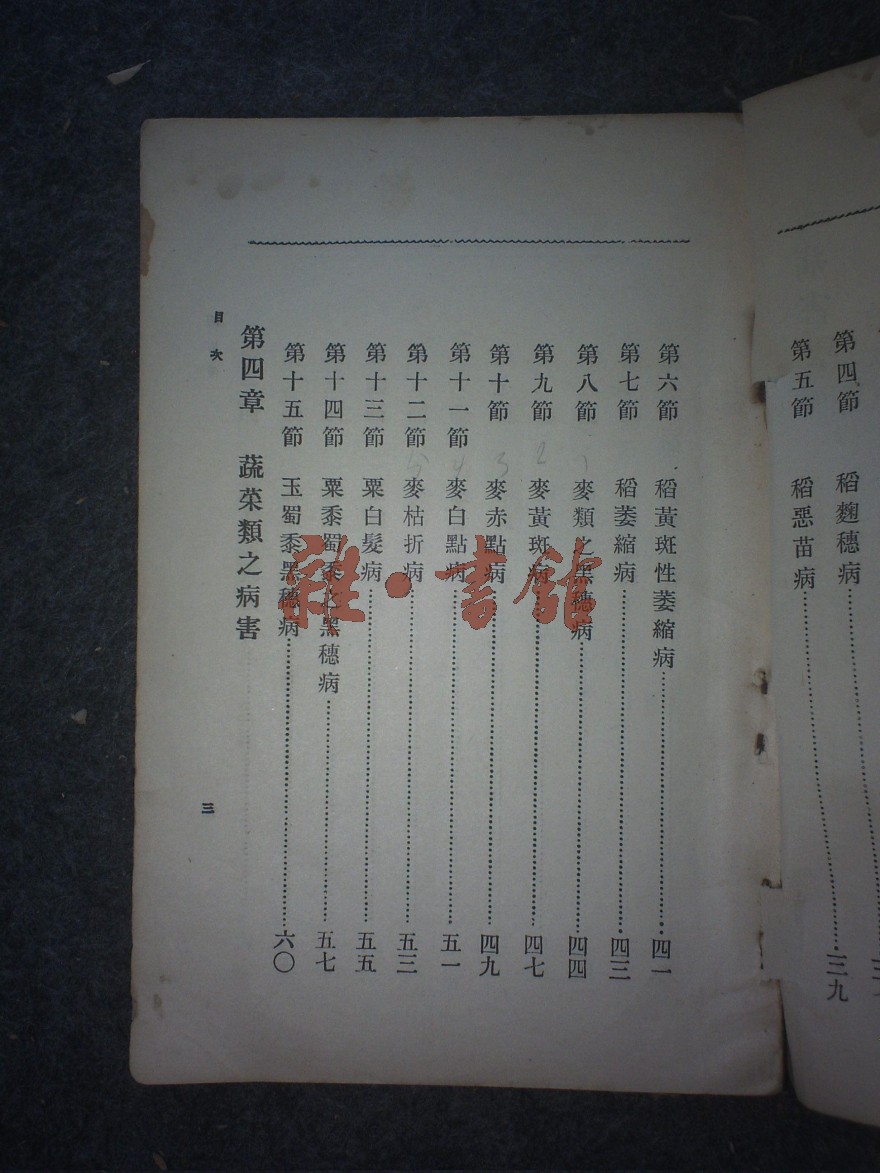 第四節　稻麴穗病
第五節　稻惡苗病……三九
第六節　稻黃斑性萎縮病……四一
第七節　稻萎縮病……四三
第八節　1　麥類之黑穗病……四四
第九節　2　麥黃斑病……四七
第十節　3　麥赤點病……四九
第十一節　4　麥白點病……五一
第十二節　5　麥枯折病……五三
第十三節　粟白髮病……五五
第十四節　粟黍蜀黍之黑穗病……五七
第十五節　玉蜀黍黑穗病……六〇
第四章　蔬菜類之病害
目次
三
雜·書館